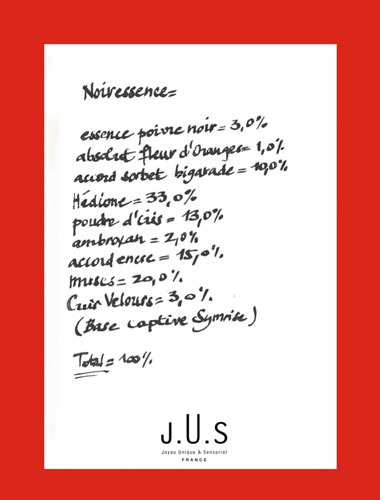 Noiressence=
essence poivre noir = 3,0%
absolut fleur d'Oranges= 1,0%
accord sorbet bigarade = 10,0%
Hédione = 33,0%
poudre d'iris = 13,0%
ambroxan = 2,0%
accord encre = 15,0%
muscs = 20,0%
Cuir Velours = 3,0%.
(Base captive Symrise)
Total = 100%
J.U.S
Joyau Unique & Sensoriel
FRANCE